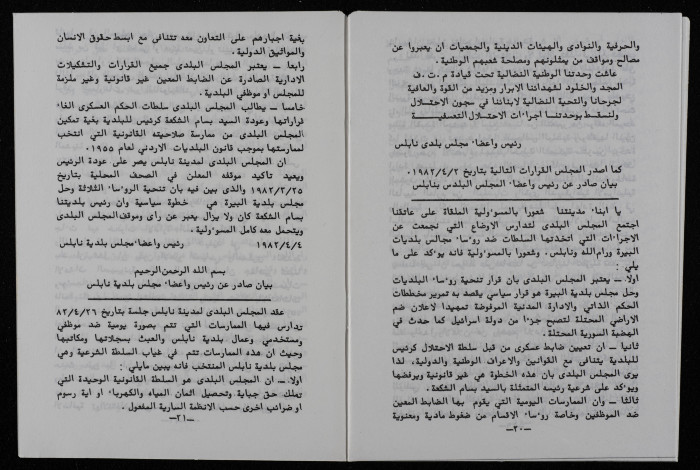 والحرفية والنوادي والهيئات الدينية والجمعيات ان يعبروا عن
مصالح ومواقف من يمثلونهم ومصلحة شعبهم الوطنية .
عاشت وحدتنا الوطنية النضالية تحت قيادة م . ت . ف
المجد والخلود لشهدائنا الابرار ومزيد من القوة والعافية
لجرحانا والتحية النضالية لابنائنا في سجون الاحتلال
ولنسقط بوحدتنا اجراءات الاحتلال التعسفية
رئيس واعضاء مجلس بلدي نابلس
كما اصدر المجلس القرارات التالية بتاريخ ١٩٨٢/٤/٢
بيان صادر عن رئيس واعضاء المجلس البلدي بنابلس
يا ابناء مدينتنا شعورا بالمسؤولية الملقاة على عاتقنا
اجتمع المجلس البلدي لتدارس الاوضاع التي نجمعت عن
الاجراءات التي اتخذتها السلطات ضد رؤساء مجالس بلديات
البيرة ورام الله ونابلس ، وشعورا بالمسؤولية فانه يؤكد على ما
يلي :
اولا ــ يعتبر المجلس البلدي بان قرار تنحية رؤساء البلديات
وحل مجلس بلدية البيرة هو قرار سياسي يقصد به تمرير مخططات
الحكم الذاتي والادارة المدنية المرفوضة تمهيدا لاعلان ضم
الاراضي المحتلة لتصبح جزءا من دولة اسرائيل كما حدث في
الهضبة السورية المحتلة .
ثانيا ــ ان تعيين ضابط عسكري من قبل سلطة الاحتلال كرئيس
للبلدية يتنافى مع القوانين والاعراف الوطنية والدولية ، لذا
يرى المجلس البلدي بان هذه الخطوة هي غير قانونية ويرفضها
ويؤكد على شرعية رئيسه المتمثلة بالسيد بسام الشكعة .
ثالثا ــ وان الممارسات اليومية التي يقوم بها الضابط المعين
ضد الموظفين وخاصة رؤساء الاقسام من ضغوط مادية ومعنوية
ــ٣٠ــ
بغية اجبارهم على التعاون معه تتنافى مع ابسط حقوق الانسان
والمواثيق الدولية .
رابعا ــ يعتبر المجلس البلدي جميع القرارات والتشكيلات
الادارية الصادرة عن الضابط المعين غير قانونية وغير ملزمة
للمجلس او موظفي البلدية .
خامسا ــ يطالب المجلس البلدي سلطات الحكم العسكري الغاء
قراراتها وعودة السيد بسام الشكعة كرئيس للبلدية بغية تمكين
المجلس البلدي من ممارسة صلاحيته القانونية التي انتخب
لممارستها بموجب قانون البلديات الاردني لعام ١٩٥٥ .
ان المجلس البلدي لمدينة نابلس يصر على عودة الرئيس
ويعيد تأكيد موقفه المعلن في الصحف المحلية بتاريخ
١٩٨٢/٣/٢٥ والذي بين فيه بان تنحية الرؤساء الثلاثة وحل
مجلس بلدية البيرة هي خطوة سياسية وان رئيس بلديتنا
بسام الشكعة كان ولا يزال يعبر عن رأي وموقف المجلس البلدي
ويتحمل معه كامل المسؤولية .
١٩٨٢/٤/٤ رئيس واعضاء مجلس بلدية نابلس
بسم الله الرحمن الرحيم
بيان صادر عن رئيس واعضاء مجلس بلدية نابلس
عقد المجلس البلدي لمدينة نابلس جلسة بتاريخ ٨٢/٤/٢٦
تدارس فيها الممارسات التي تتم بصورة يومية ضد موظفي
ومستخدمي وعمال بلدية نابلس والعبث بسجلاتها ومكاتبها
وحيث ان هذه الممارسات تتم في غياب السلطة الشرعية وهي
مجلس بلدية نابلس المنتخب فانه يبين مايلي :
اولا ــ ان المجلس البلدي هو السلطة القانونية الوحيدة التي
تملك حق جباية وتحصيل اثمان المياه والكهرباء او اية رسوم
او ضرائب اخرى حسب الانظمة السارية المفعول .
ــ٣١ــ